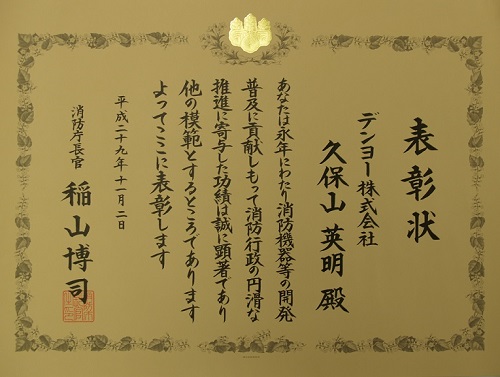 表彰状
デンヨー株式会社
久保山英明殿
あなたは永年にわたり消防機器等の開発
普及に貢献しもって消防行政の円滑な
推進に寄与した功績は誠に顕著であり
他の模範とするところであります
よってここに表彰します
平成二十九年十一月二日
消防庁長官
稲山博司